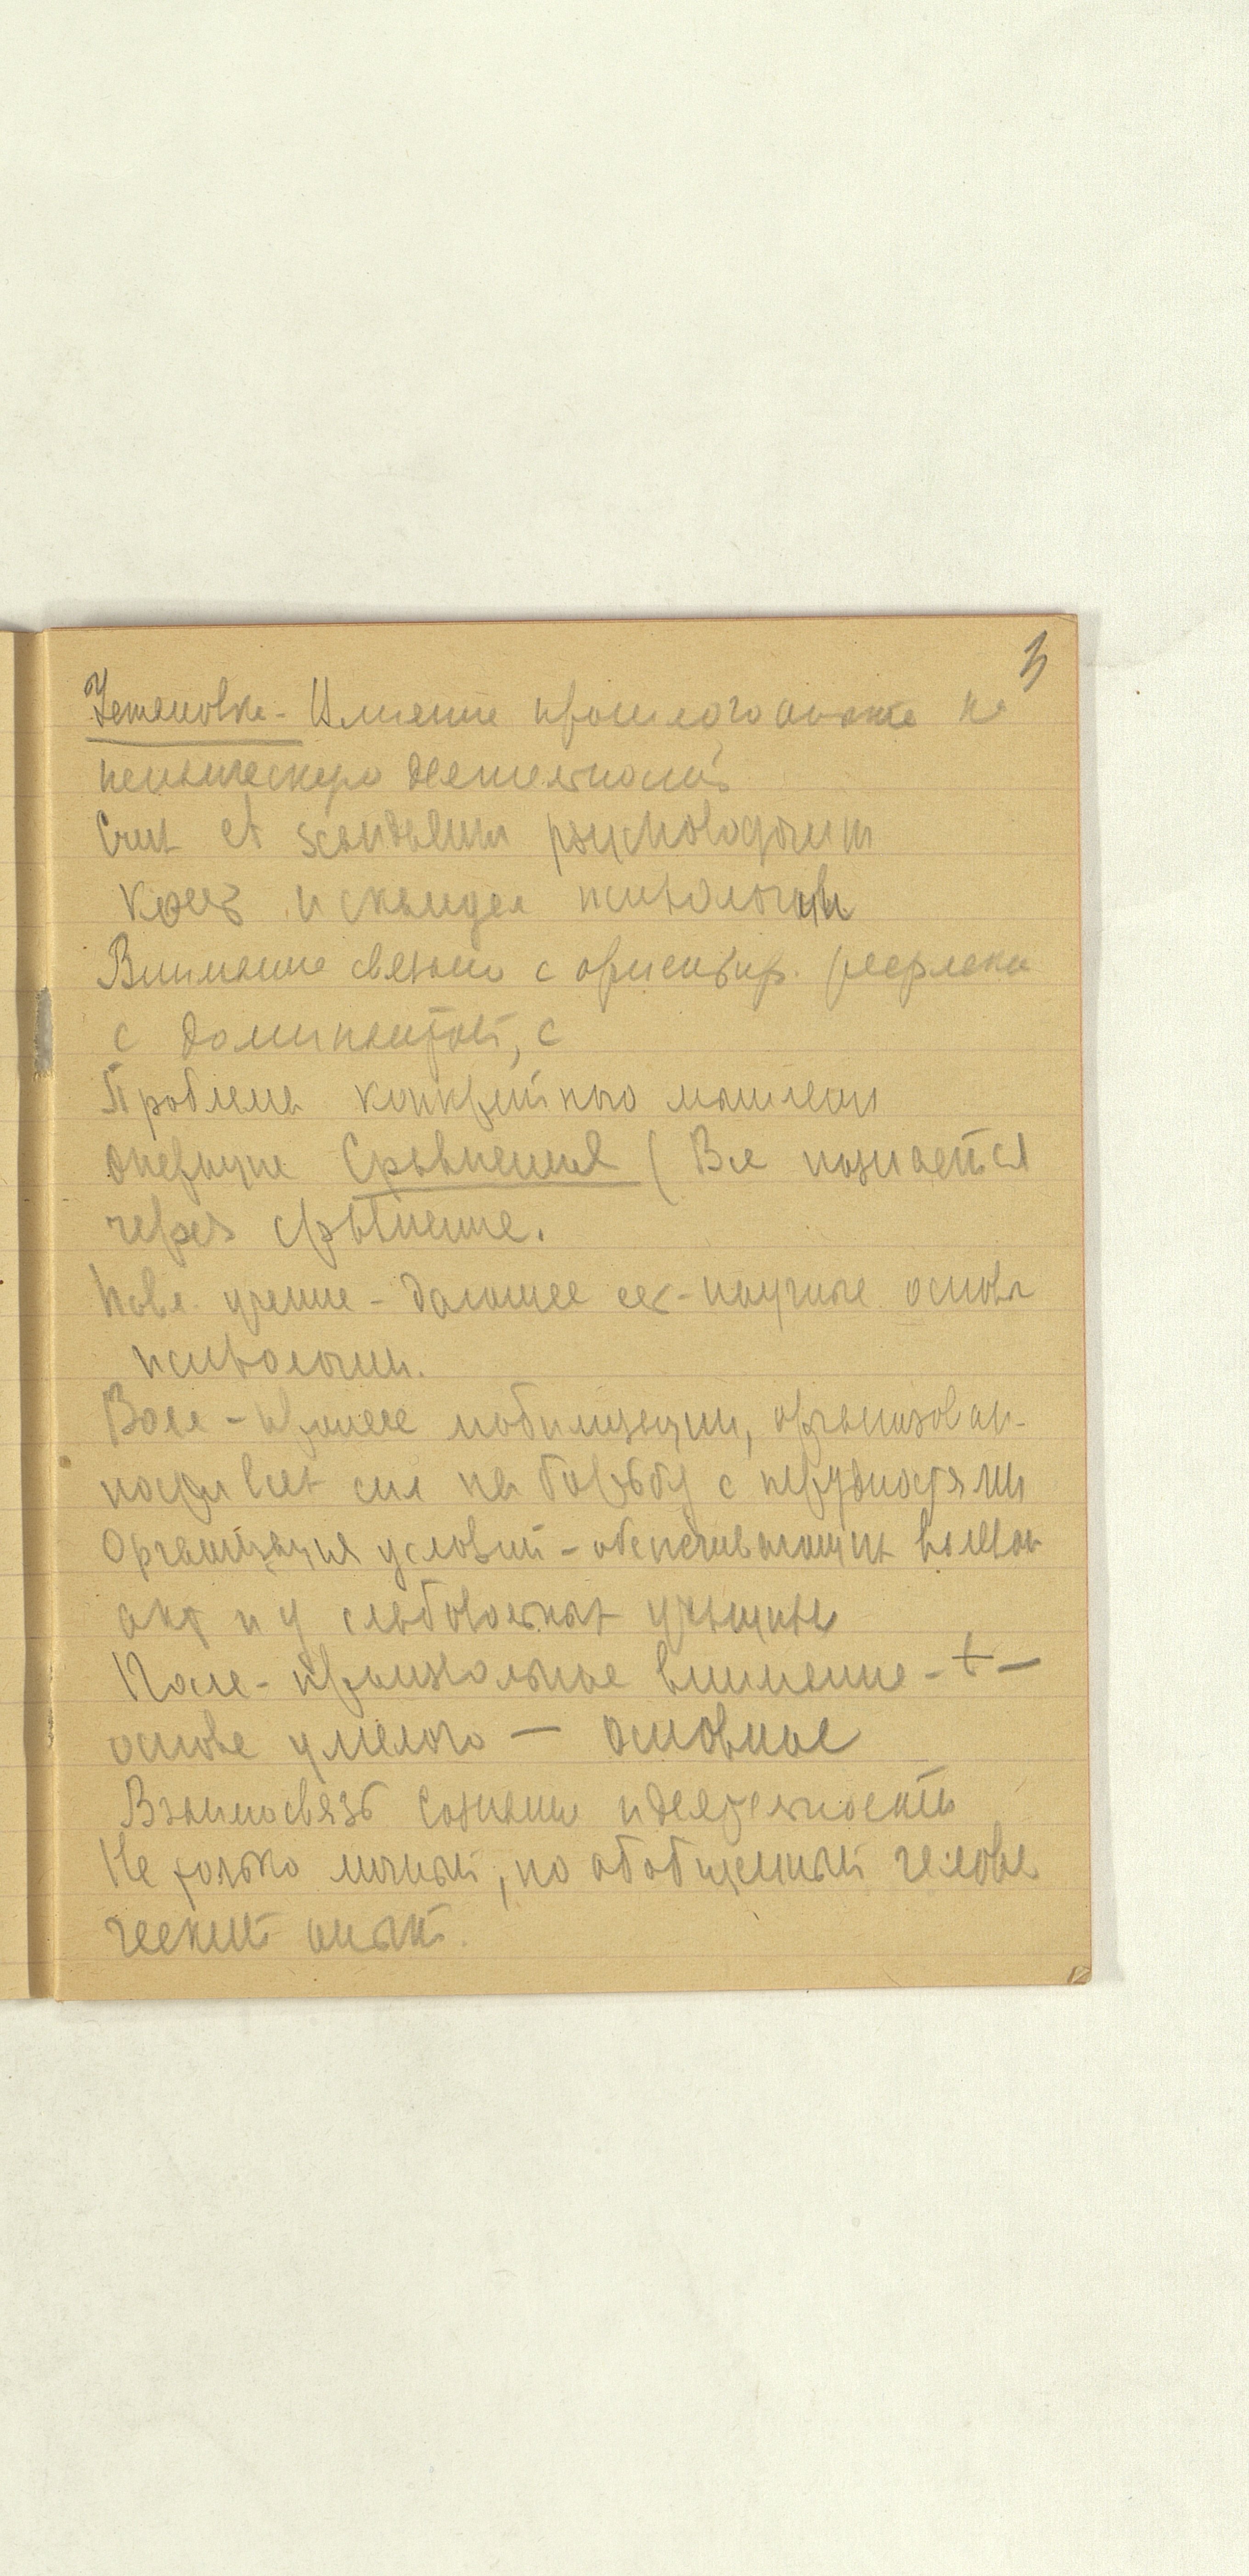 3
Установка - Влияние прошлого опыта на
психическую деятельность
Crux et scandalum psychologorum
Крест и скандал психологии
Внимание связано с ориентир. рефлекс
с доминантой, с
Проблема конкретного мышлен
операция Сравнения (Все познается
через сравнение.
Павл. учение - дающее ест-научные основы
психологии.
Воля - мобилизации, организован-
ности всех сил на борьбу с трудностями
Организация условий - обеспечивающих волевой
акт и у слабовольных учащихся
После-произвольное внимание - + -
основе умелого — основное
Взаимосвязь сознания и деятельности
Не только личный, но обобщенный челове
ческий опыт.